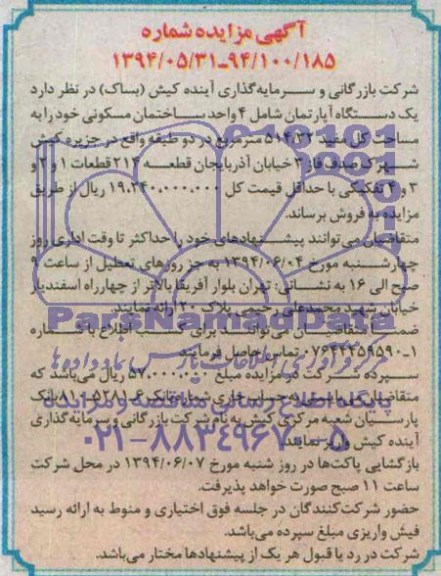 آگهی مزایده شماره
۹۴/۱۰۰/۱۸۵-۱۳۹۴/۰۵/۳۱
شرکت بازرگانی و سرمایه‌گذاری آینده کیش (بساک) در نظر دارد
یک دستگاه آپارتمان شامل ۴ واحد ساختمان مسکونی خود را به
مساحت کل مفید ۵۱۴/۲۲ مترمربع در دو طبقه واقع در جزیره کیش
شهرک صدف فاز ۳ خیابان آذربایجان قطعه ۲۱۴ قطعات ۱ و ۲ و
۳ و ۴ تفکیکی با حداقل قیمت کل ۱۹.۲۴۰.۰۰۰.۰۰۰ ریال از طریق
مزایده به فروش برساند.
متقاضیان می‌توانند پیشنهادهای خود را حداکثر تا وقت اداری روز
چهارشنبه مورخ ۱۳۹۴/۰۶/۰۴ به جز روزهای تعطیل از ساعت ۹
صبح الی ۱۶ به نشانی: تهران بلوار آفریقا بالاتر از چهارراه اسفندیار
خیابان شهید محمدعلی رحیمی پلاک ۲۰ ارائه نمایند.
ضمناً متقاضیان می‌توانند برای کسب اطلاع با شماره
۱-۰۷۶۴۴۴۵۹۵۹۰ تماس حاصل فرمایند.
سپرده شرکت در مزایده مبلغ ۵۷۰.۰۰۰.۰۰۰ ریال می‌باشد که
متقاضیان می‌بایستی به حساب جاری شماره بانک
پارسیان شعبه مرکزی کیش به نام شرکت بازرگانی و سرمایه‌گذاری
آینده کیش واریز نمایند.
بازگشایی پاکت‌ها در روز شنبه مورخ ۱۳۹۴/۰۶/۰۷ در محل شرکت
ساعت ۱۱ صبح صورت خواهد پذیرفت.
حضور شرکت‌کنندگان در جلسه فوق اختیاری و منوط به ارائه رسید
فیش واریزی مبلغ سپرده می‌باشد.
شرکت در رد یا قبول هر یک از پیشنهادها مختار می‌باشد.
ParsNamadData
گردآوری اطلاعات پارس نماد داده‌ها
پایگاه اطلاع رسانی مناقصه و مزایده
۰۲۱-۸۸۳۴۹۶۷۰-۵